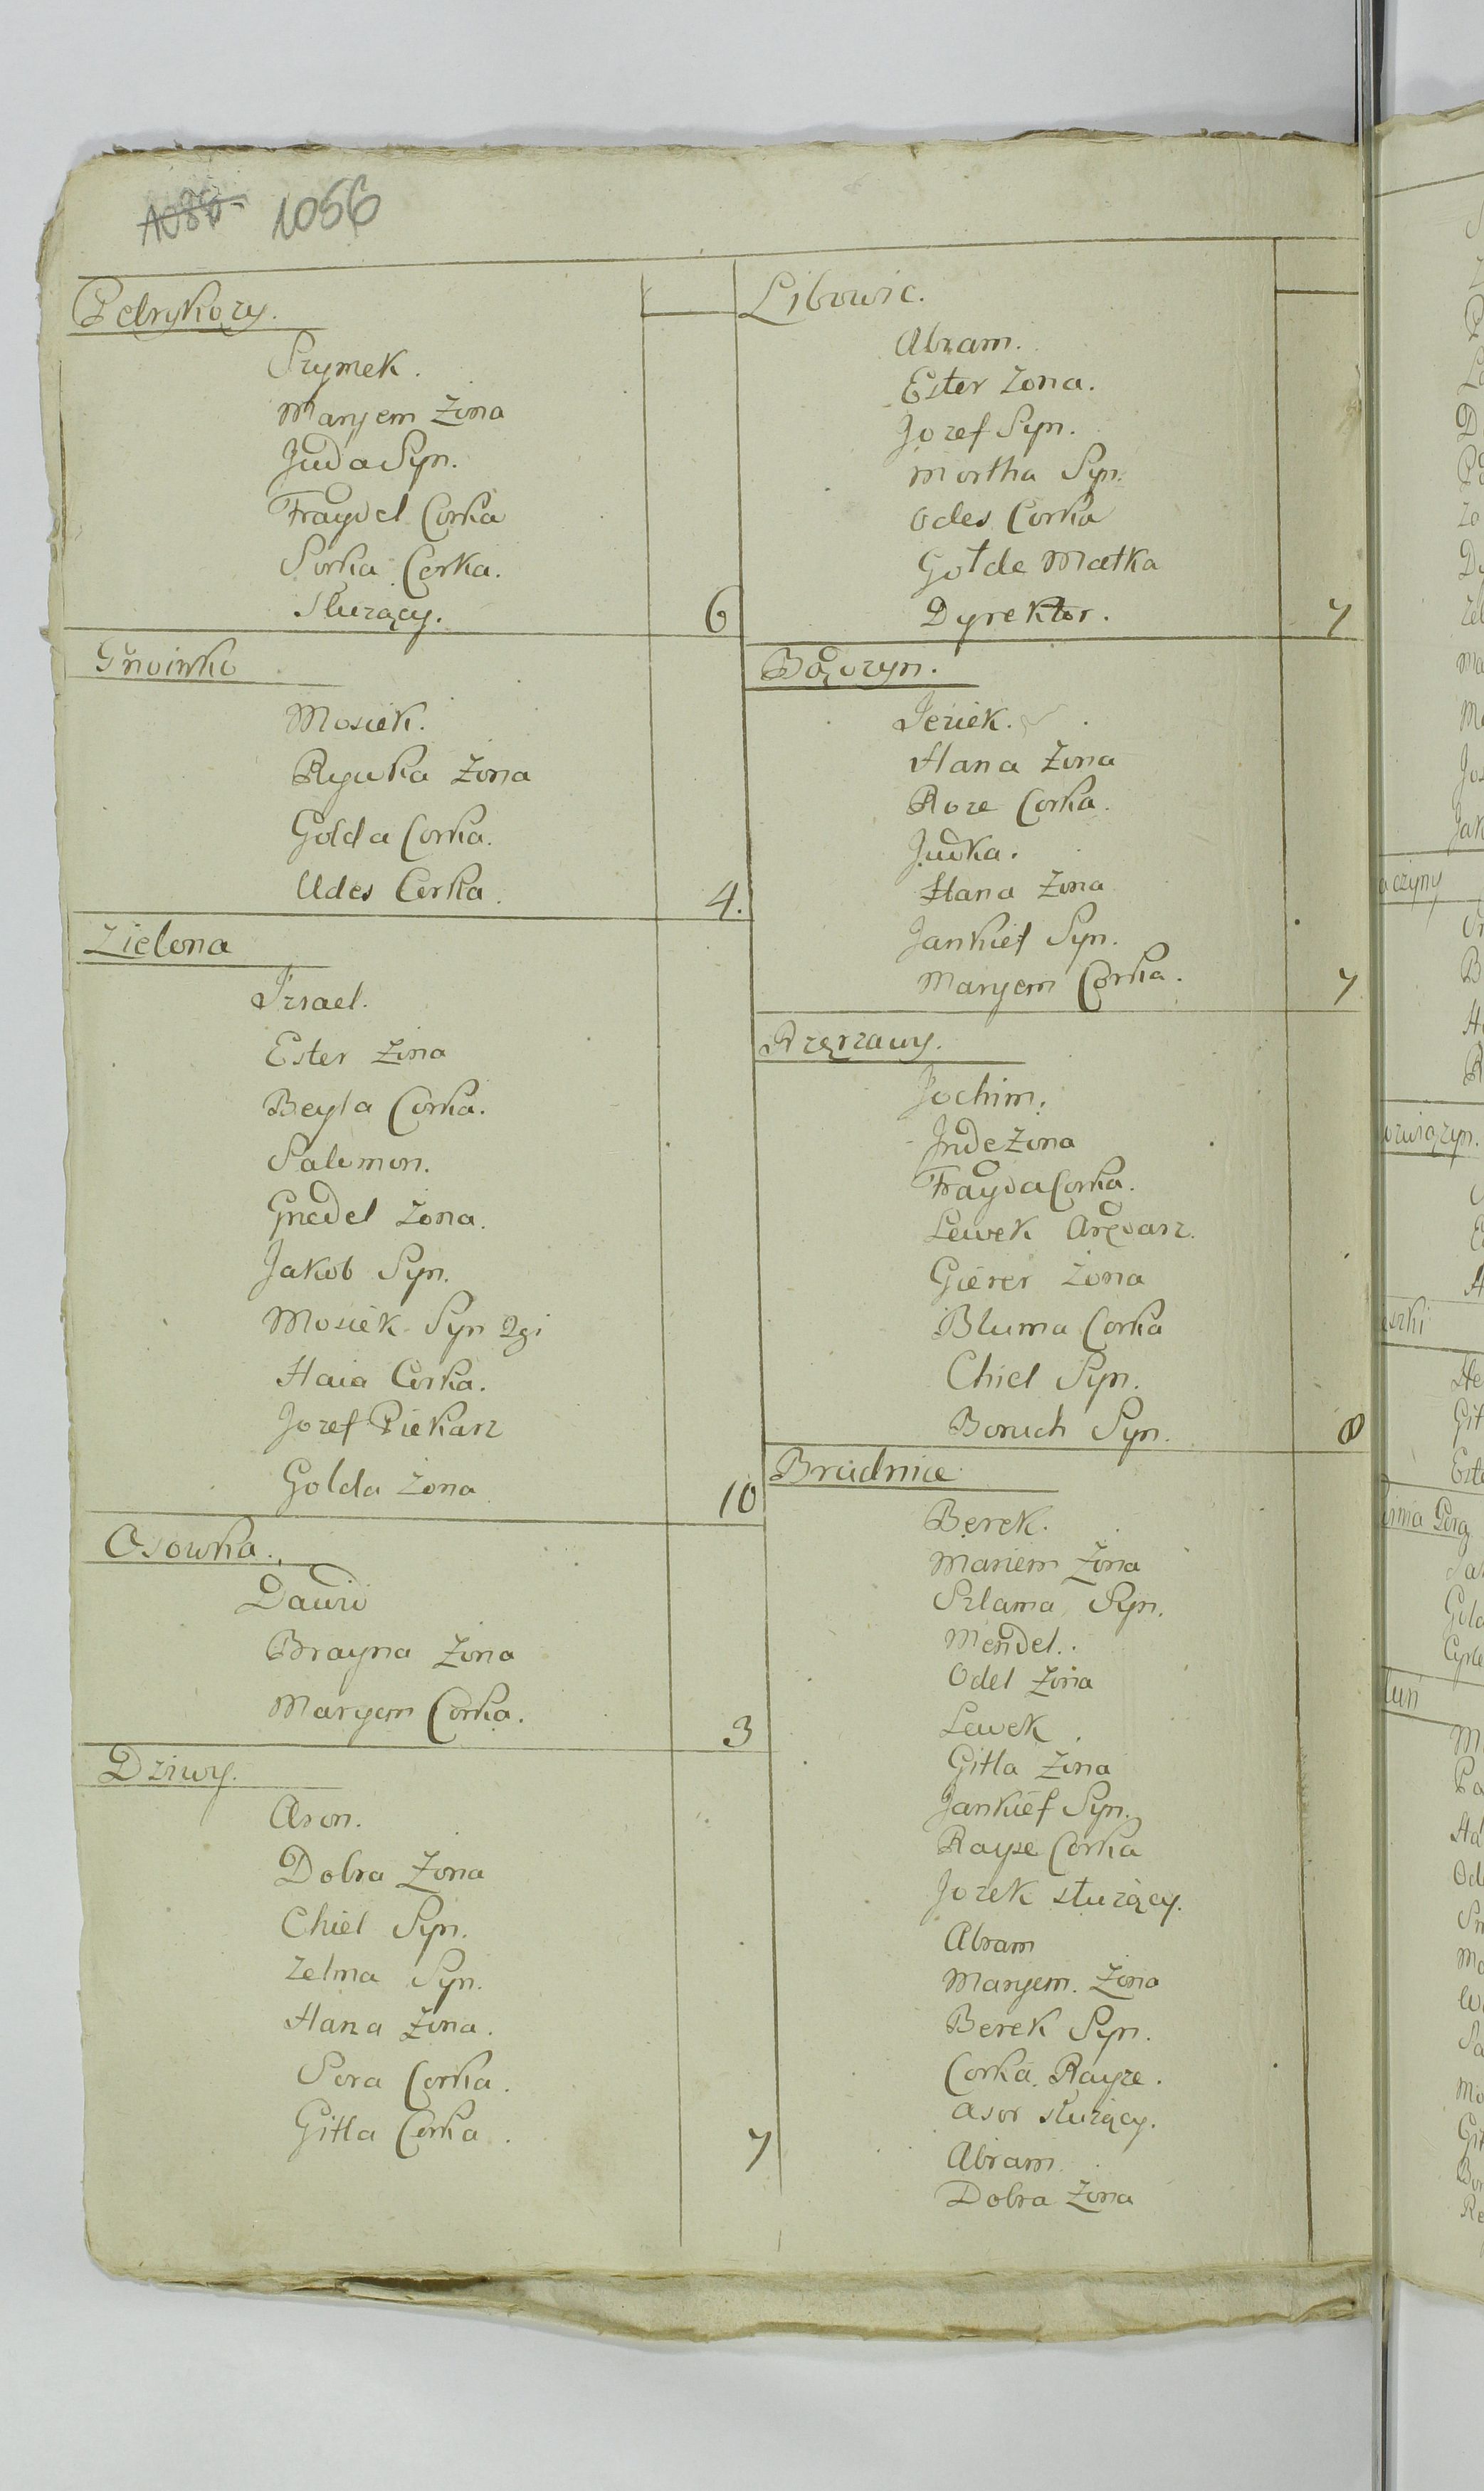 1056
Petrykozy.
Szymek.
Maryem Żona
Juda Syn.
Fraydel Corka
Sorka Corka.
Służący.
6
Gnoinko
Mosiek.
Rywka Żona
Golda Corka.
Udes Corka.
4.
Zielona
Izrael.
Ester Żona
Beyla Corka.
Salomon.
Gnedel Żona.
Jakob Syn.
Mosiek Syn 2gi
Haia Corka.
Jozef Piekarz
Golda Żona
10
Osowka.
Dawid
Brayna Żona
Maryem Corka.
3
Dziwy.
Aron.
Dobra Żona
Chiel Syn.
Zelma Syn.
Hana Żona.
Sora Corka.
Gitla Corka.
7
Libowic.
Abram.
Ester Żona.
Jozef Syn.
Mortha Syn.
Odes Corka
Gołde Matka
Dyrektor.
7
Icziek.
Hana Żona
Roze Corka.
Judka.
Hana Żona
Jankief Syn.
Maryem Corka.
7
Jochim.
Jude Żona
Frayda Corka.
Lewek Arędarz.
Gierer Żona
Bluma Corka
Chiel Syn.
Boruch Syn.
8
Brudnice
Berek.
Mariem Żona
Szlama Syn.
Mendel.
Odel Żona
Lewek.
Gitla Żona
Jankief Syn.
Rayze Corka
Jozek służący.
Abram
Maryem. Żona
Berek Syn.
Corka Rayze.
Asor służący.
Abram.
Dobra Żona